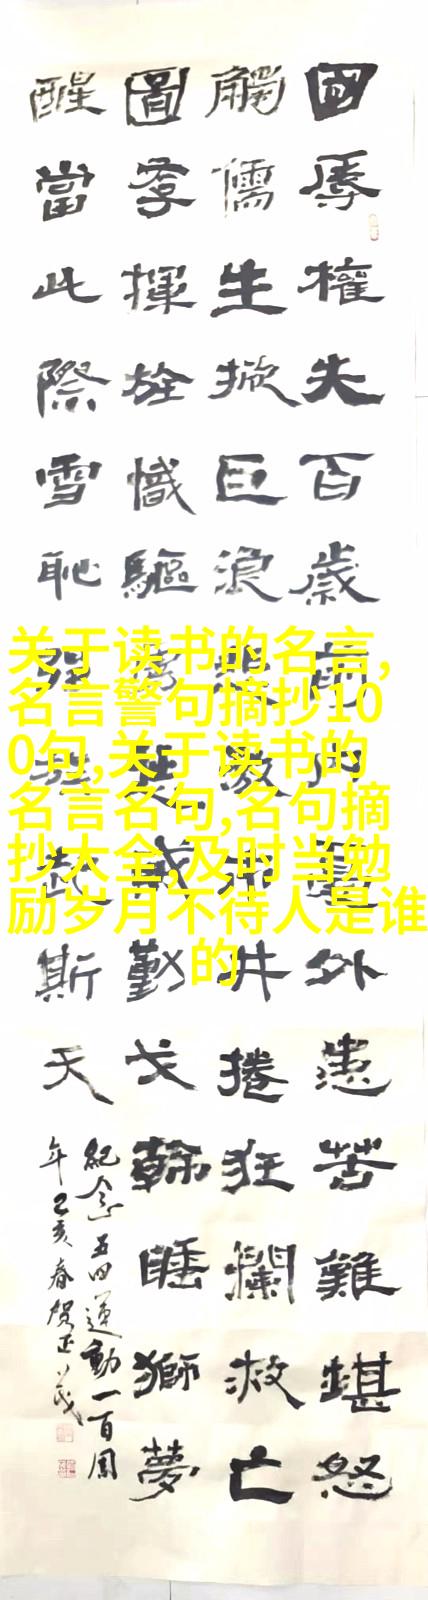 國辱權失百歲前內憂外患苦難堪怒
觸儒生掀巨浪激市井捲狂瀾救亡
圖存揮旌幟驅勤戈斡睡獅夢
醒當此際雪恥強起斯天
紀念五四運動一百周
年己亥春賀正茂
关于读书的名言,
名言警句摘抄10
0句,关于读书的
名言名句,名句摘
抄大全,及时当勉
励岁月不待人是谁
的